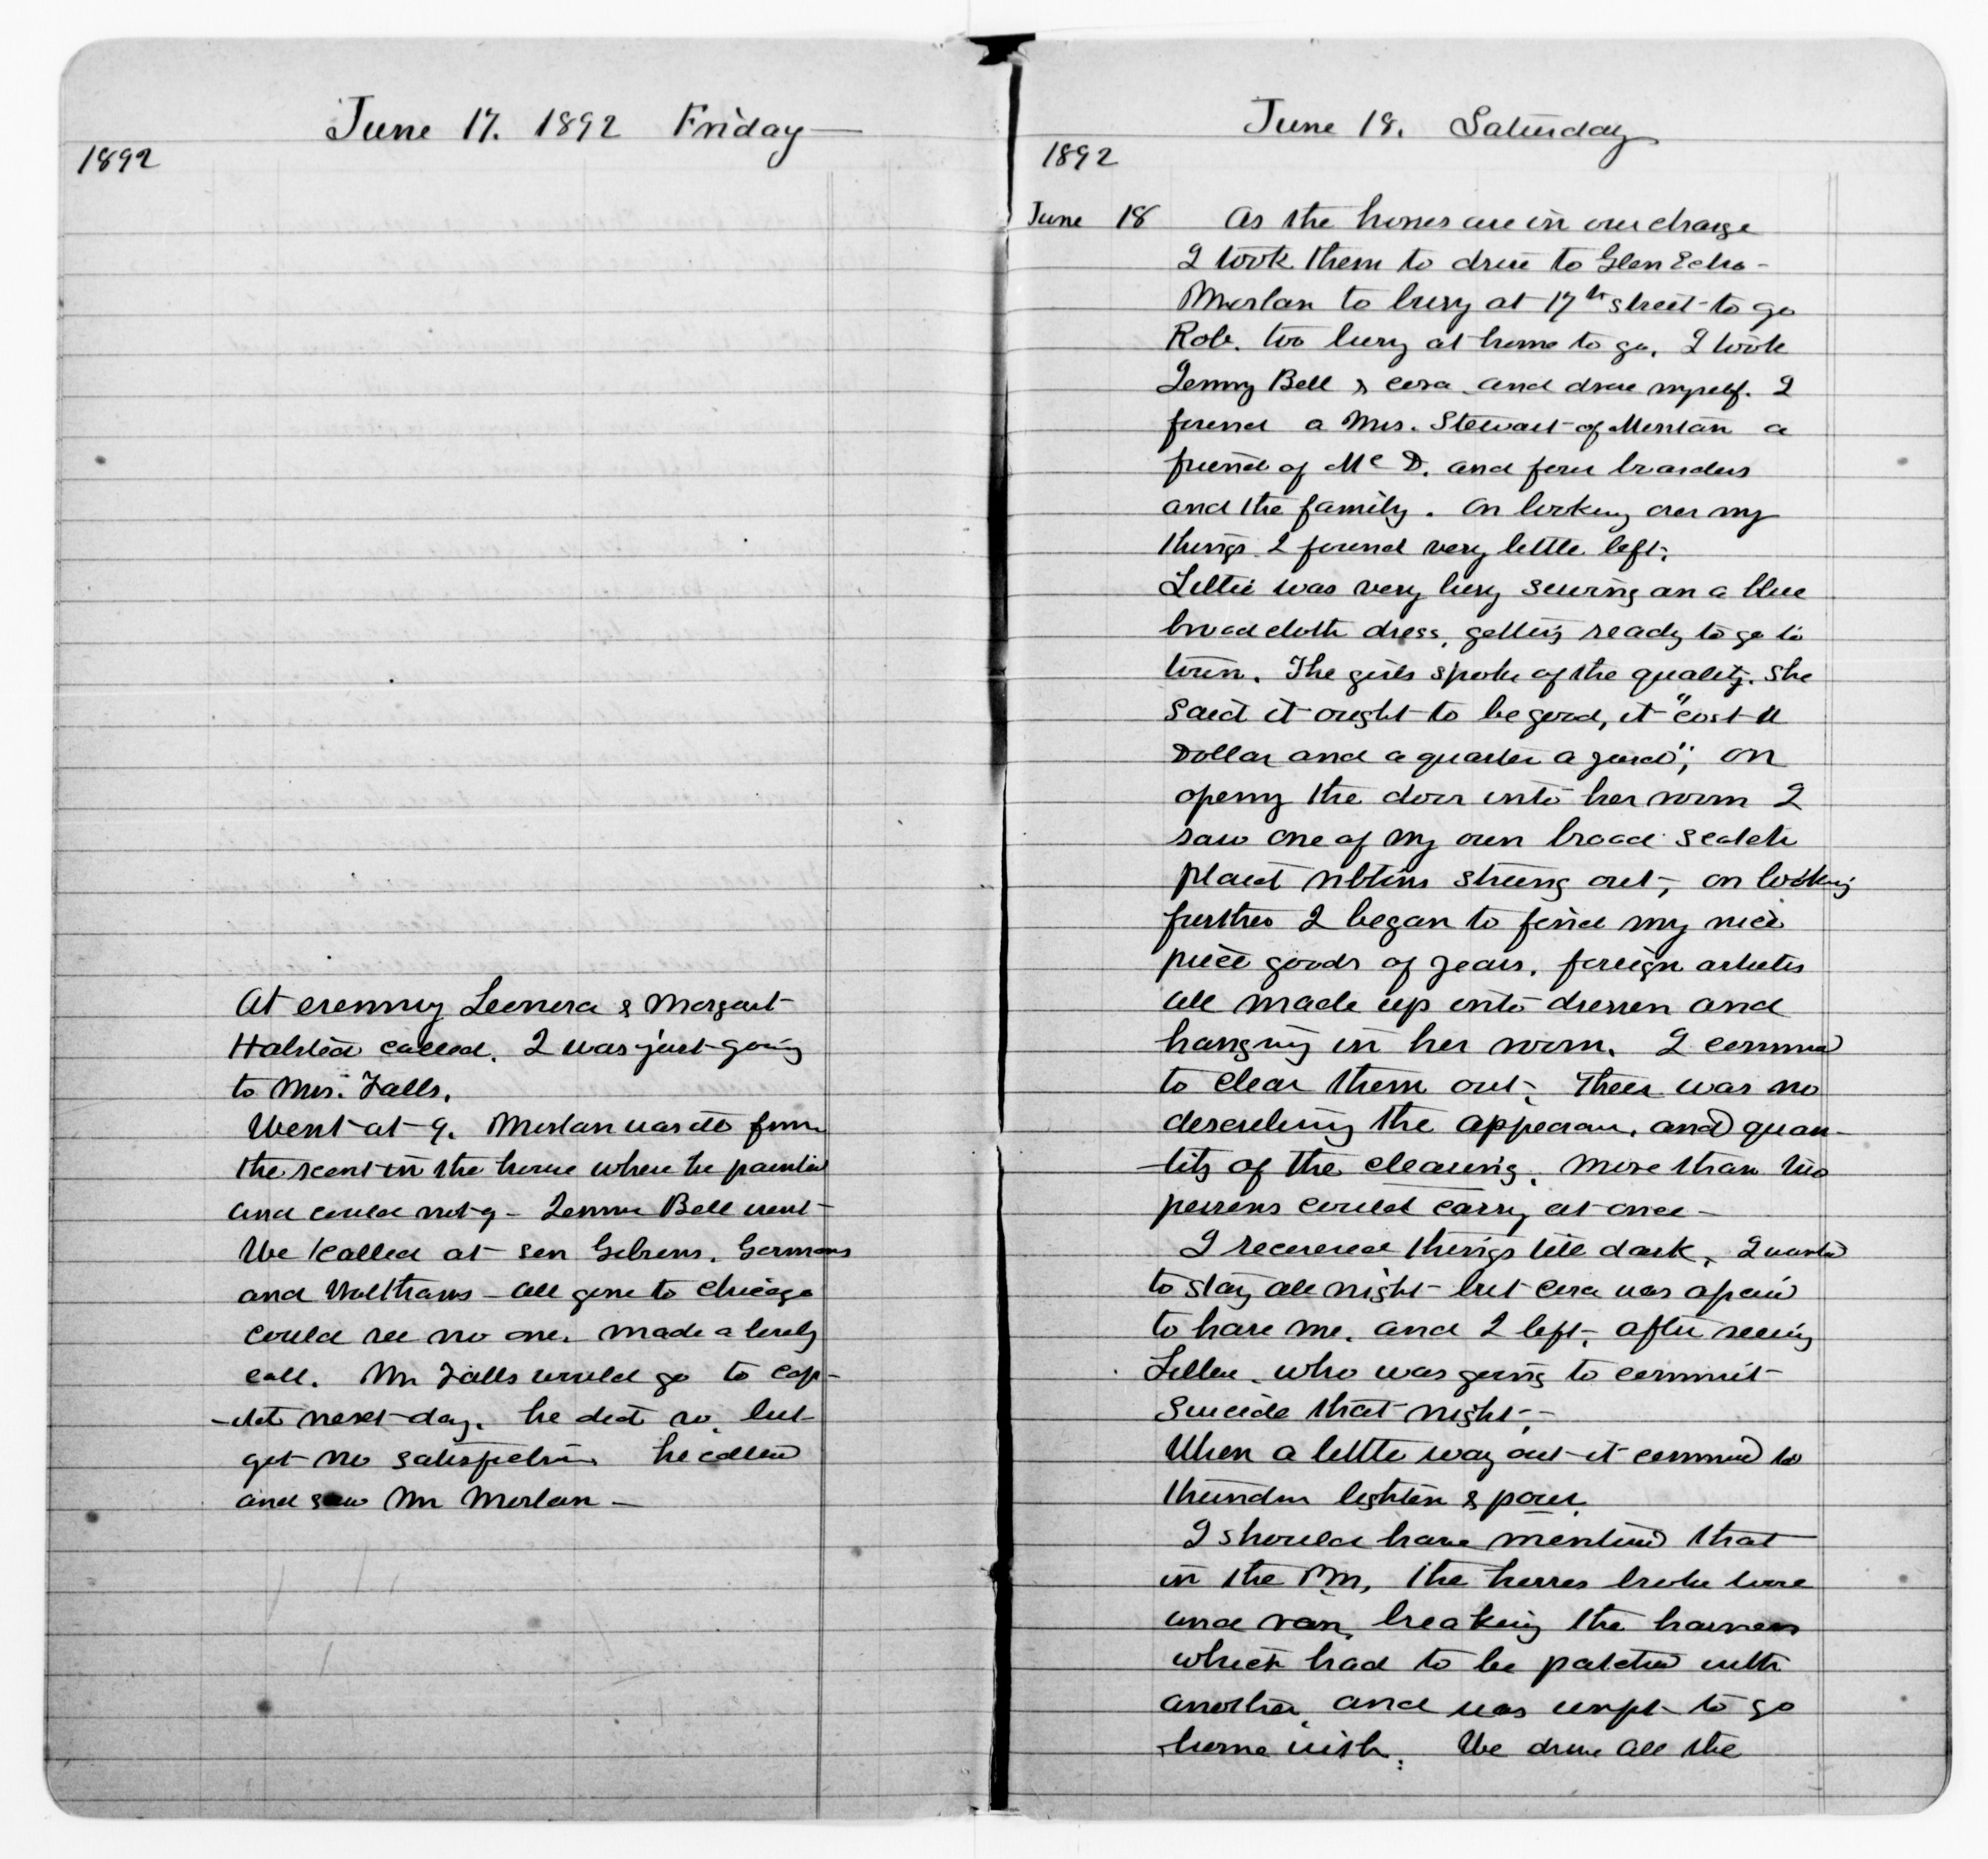 June 17. 1892 Friday
1892
At evening Leonora & Margaret
Halsted called. I was just going
to Mrs. Falls.
Went at 9. Morlan was ill from
the scent in the house where he painted
and could not go - Jennie Bell went
We called at Sen Gibsons, Gormans
and Walthams - all gone to Chicago
could see no one. made a lovely
call. Mr Falls would go to Cap-
-itol next day. he did so, but
got no satisfaction he called
and saw Mr Morlan -
June 18. Saturday
1892
June 18 As the horses are in our charge
I took them to drive to Glen Echo -
Morlan to busy at 17th street to go
Rob. too busy at home to go. I took
Jenny Bell & Cora and drove myself. I
found a Mrs. Stewart of a
friend of Mc D. and four boarders
and the family. On looking over my
things I found very little left.
Lettie was very busy sewing on a blue
broad cloth dress, getting ready to go to
town. The girls spoke of the quality. She
said it ought to be good, it "cost a
Dollar and a quarter a yard", on
opening the door into her room I
saw one of my own broad Scotch
plaid ribbons strung out, on looking
further I began to find my nice
piece goods of years, foreign articles
all made up into dresses and
hanging in her room. I commenced
to clear them out. There was no
describing the appearance, and quan-
-tity of the clearing. More than two
persons could carry at once -
I recovered things till dark, I wanted
to stay all night but Cora was afraid
to have me, and I left, after seeing
who was going to commit
Suicide that night -
When a little way out it commenced to
thunder lighten & pour.
I should have mentioned that
in the Mn, the horses broke loose
and ran, breaking the harness
which had to be patched with
another, and was unfit to go
home with. We drove all the